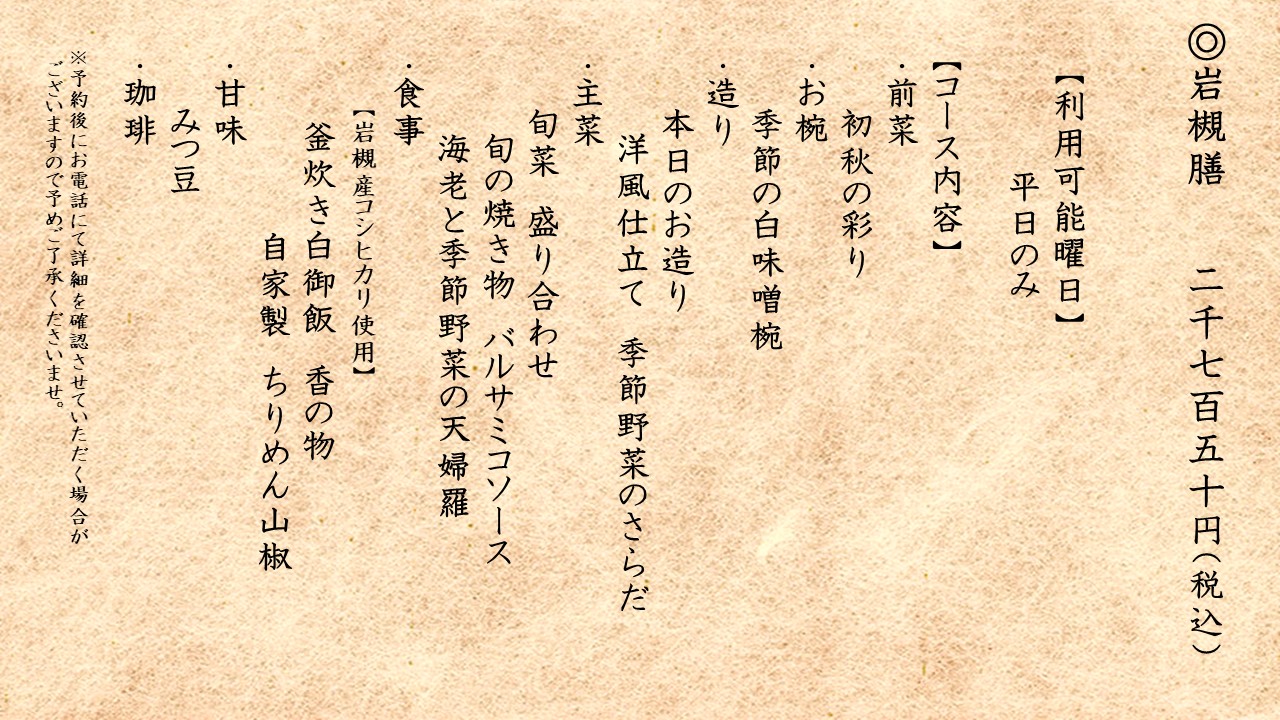 ◎岩槻膳　二千七百五十円（税込）
【利用可能曜日】
平日のみ
【コース内容】
・前菜
初秋の彩り
・お椀
季節の白味噌椀
・造り
本日のお造り
洋風仕立て　季節野菜のさらだ
・主菜
旬菜　盛り合わせ
旬の焼き物　バルサミコソース
海老と季節野菜の天婦羅
・食事
【岩槻産コシヒカリ使用】
釜炊き白御飯　香の物
自家製　ちりめん山椒
・甘味
みつ豆
・珈琲
※予約後にお電話にて詳細を確認させていただく場合が
ございますので予めご了承くださいませ。